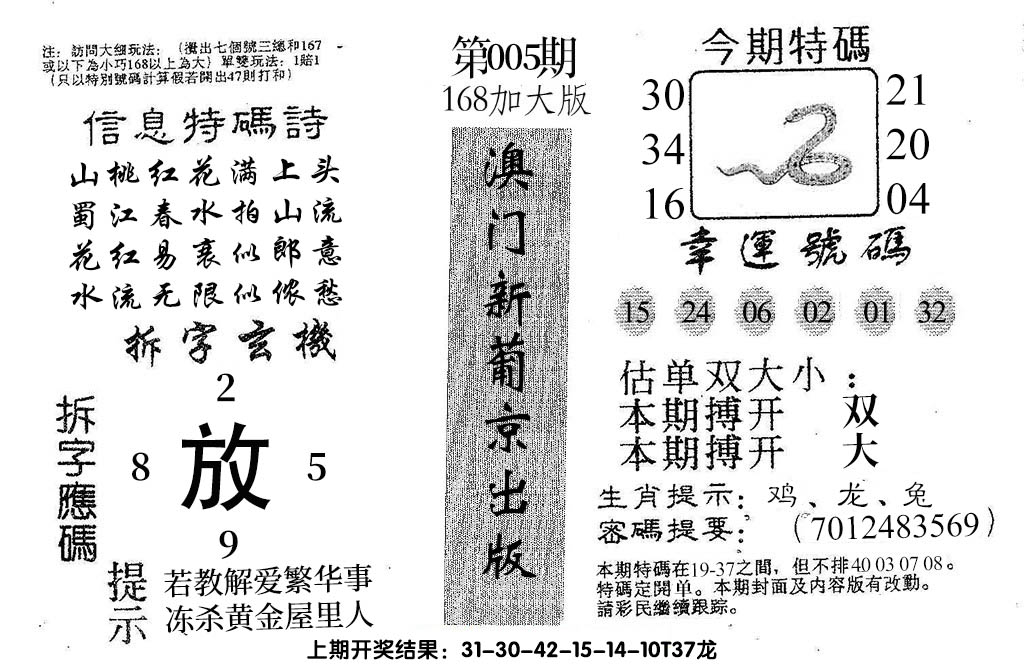 注：訪問大细玩法：（攪出七個號三總和167
或以下為小巧168以上為大）單雙玩法：1賠1
（只以特別號碼計算假若開出47則打和）
信息特碼詩
山桃红花满上头
蜀江春水拍山流
花红易衰似郎意
水流无限似侬愁
拆字玄機
拆字應碼
2
8 放 5
9
提示
若教解爱繁华事
冻杀黄金屋里人
第005期
168加大版
澳门新葡京出版
今期特碼
30 21
34 20
16 04
幸運號碼
15 24 06 02 01 32
估单双大小：
本期搏开 双
本期搏开 大
生肖提示：鸡、龙、兔
密碼提要：（7012483569）
本期特碼在19-37之間，但不排40 03 07 08。
特碼定開单。本期封面及内容版有改動。
請彩民繼續跟踪。
上期开奖结果：31-30-42-15-14-10T37龙